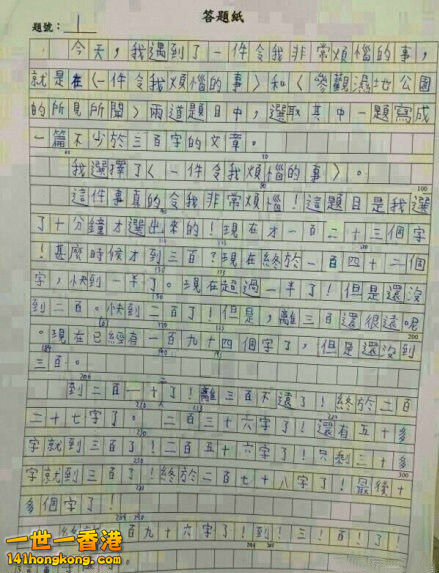 答題紙
題號：1
今天，我遇到了一件令我非常煩惱的事，
就是在〈一件令我煩惱的事〉和〈參觀濕地公園
的所見所聞〉兩道題目中，選取其中一題寫成
一篇不少於三百字的文章。
我選擇了〈一件令我煩惱的事〉。
這件事真的令我非常煩惱！這題目是我選
了十分鐘才選出來的！現在才一百二十三個字
！甚麼時候才到三百？現在終於一百四十二個
字，快到一半了。現在超過一半了！但是還沒
到二百。快到二百了！但是，離三百還很遠呢
。現在已經有一百九十四個字了，但是還沒到
三百。
到二百一十了！離三百不遠了！終於二百
二十七字了。二百三十六字了！還有五十多
字就到三百了！二百五十六字了！只剩三十多
字就到三百了！終於二百七十八字了！最後十
多個字了！
百九十六字了！到！三！百！了！
一世一香港
141hongkong.com